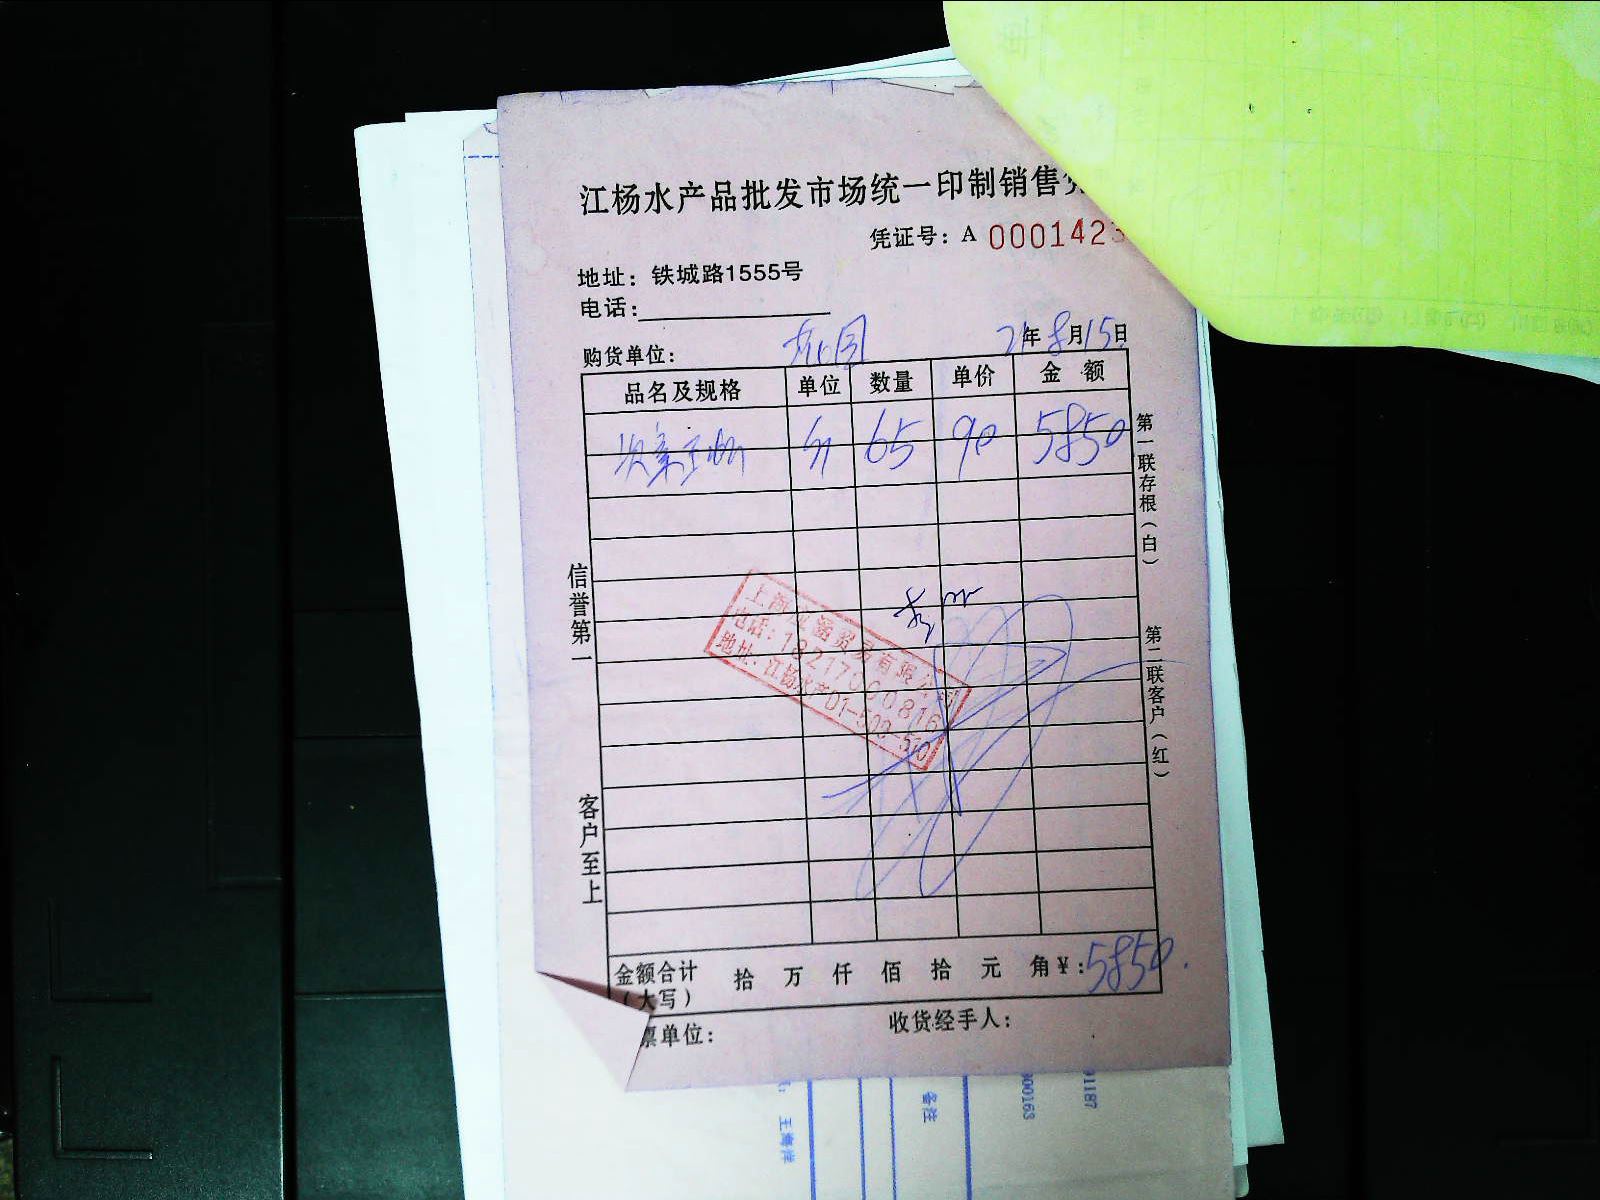 江杨水产品批发市场统一印制销售
凭证号：A 0001423
地址：铁城路1555号
电话：
购货单位：
21年8月15日
品名及规格 单位 数量 单价 金 额
斤 65 90 5850
第一联存根（白）
第二联客户（红）
信誉第一
客户至上
上海 涵贸易有限公司
电话：18217000816
地址：江杨水产D1-509-510
金额合计（大写） 拾 万 仟 佰 拾 元 角 ¥：5850.
票单位：
收货经手人：
备注
王海洋
900163
01187